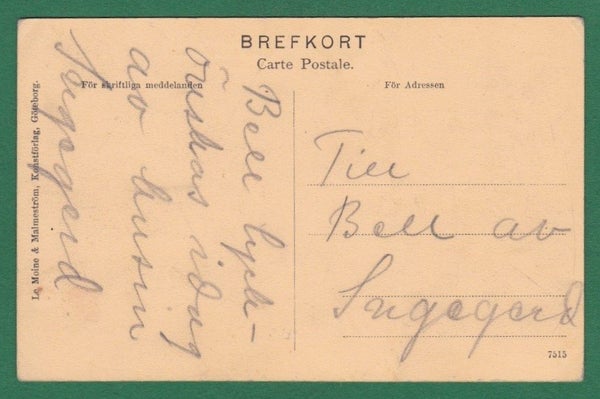 BREFKORT
Carte Postale.
För skriftliga meddelanden
För Adressen
Bell lyck-
önskas idag
av kusin
Ingegerd
Till
Bell av
Ingegerd
Le Moine & Malmeström, Konstförlag, Göteborg.
7515